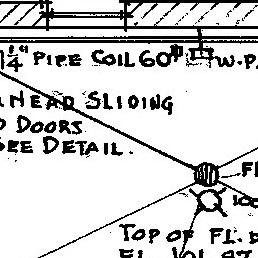 1¼" PIPE COIL 60# W.P.
HEAD SLIDING
DOORS
SEE DETAIL.
FL
100
TOP OF FL. D
EL. 101.87